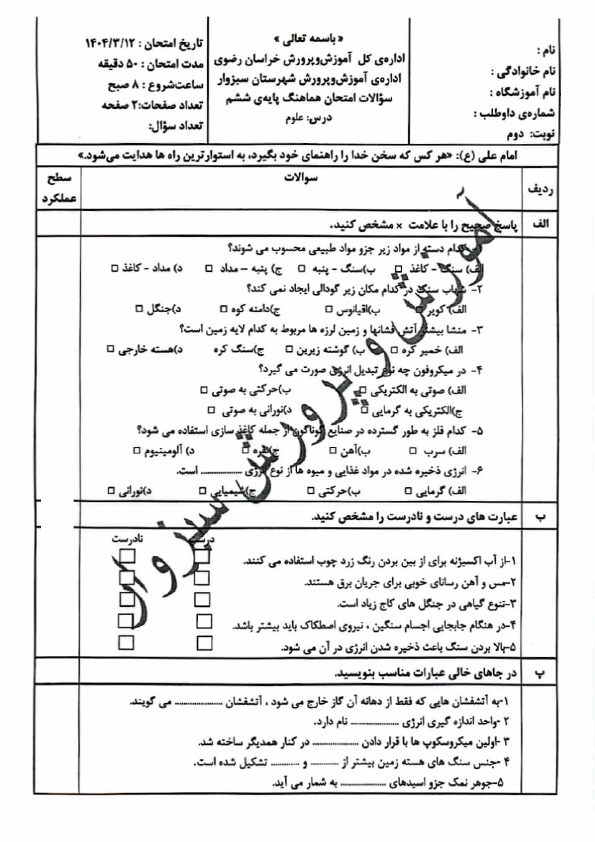 « باسمه تعالی »
اداره‌ی کل آموزش‌وپرورش خراسان رضوی
اداره‌ی آموزش‌وپرورش شهرستان سبزوار
سؤالات امتحان هماهنگ پایه‌ی ششم
درس: علوم
نام :
نام خانوادگی :
نام آموزشگاه :
شماره‌ی داوطلب :
نوبت: دوم
تاریخ امتحان : ۱۴۰۴/۳/۱۲
مدت امتحان : ۵۰ دقیقه
ساعت‌شروع : ۸ صبح
تعداد صفحات:۲ صفحه
تعداد سؤال:
امام علی (ع): «هر کس که سخن خدا را راهنمای خود بگیرد، به استوارترین راه ها هدایت می‌شود.»
ردیف سوالات سطح عملکرد
الف پاسخ صحیح را با علامت × مشخص کنید.
کدام دسته از مواد زیر جزو مواد طبیعی محسوب می شوند؟
الف) سنگ - کاغذ □ ب)سنگ - پنبه □ ج) پنبه – مداد □ د) مداد - کاغذ □
۲- شهاب سنگ در کدام مکان زیر گودالی ایجاد نمی کند؟
الف) کویر □ ب)اقیانوس □ ج)دامنه کوه □ د)جنگل □
۳- منشا بیشتر آتش فشانها و زمین لرزه ها مربوط به کدام لایه زمین است؟
الف) خمیر کره □ ب) گوشته زیرین □ ج)سنگ کره د)هسته خارجی □
۴- در میکروفون چه نوع تبدیل انرژی صورت می گیرد؟
الف) صوتی به الکتریکی □ ب)حرکتی به صوتی □
ج)الکتریکی به گرمایی □ د)نورانی به صوتی □
۵- کدام فلز به طور گسترده در صنایع گوناگون از جمله کاغذ سازی استفاده می شود؟
الف) سرب □ ب)آهن □ ج)نقره □ د) آلومینیوم □
۶- انرژی ذخیره شده در مواد غذایی و میوه ها از نوع انرژی .................. است.
الف) گرمایی □ ب)حرکتی □ ج)شیمیایی □ د)نورانی □
ب عبارت های درست و نادرست را مشخص کنید.
درست نادرست
۱-از آب اکسیژنه برای از بین بردن رنگ زرد چوب استفاده می کنند. □ □
۲-مس و آهن رسانای خوبی برای جریان برق هستند. □ □
۳-تنوع گیاهی در جنگل های کاج زیاد است. □ □
۴-در هنگام جابجایی اجسام سنگین ، نیروی اصطکاک باید بیشتر باشد. □ □
۵-بالا بردن سنگ باعث ذخیره شدن انرژی در آن می شود. □ □
پ در جاهای خالی عبارات مناسب بنویسید.
۱-به آتشفشان هایی که فقط از دهانه آن گاز خارج می شود ، آتشفشان .................... می گویند.
۲-واحد اندازه گیری انرژی .................... نام دارد.
۳-اولین میکروسکوپ ها با قرار دادن .................... در کنار همدیگر ساخته شد.
۴- جنس سنگ های هسته زمین بیشتر از ............ و ............ تشکیل شده است.
۵-جوهر نمک جزو اسیدهای .................... به شمار می آید.
آموزش و پرورش سبزوار